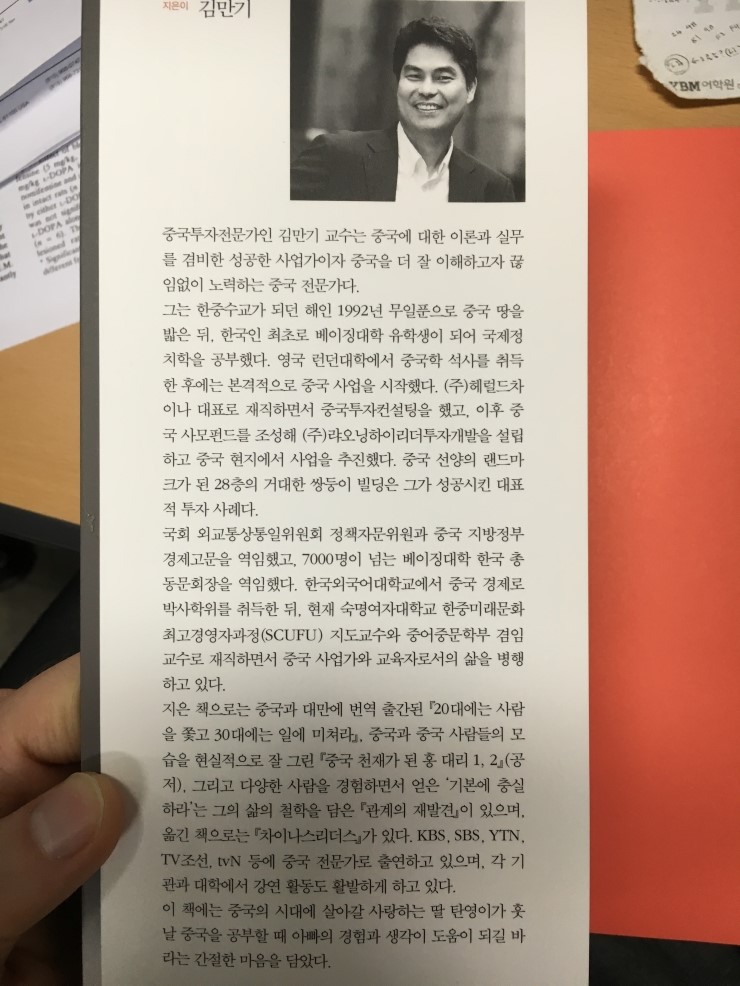 지은이 김만기
중국투자전문가인 김만기 교수는 중국에 대한 이론과 실무
를 겸비한 성공한 사업가이자 중국을 더 잘 이해하고자 끊
임없이 노력하는 중국 전문가다.
그는 한중수교가 되던 해인 1992년 무일푼으로 중국 땅을
밟은 뒤, 한국인 최초로 베이징대학 유학생이 되어 국제정
치학을 공부했다. 영국 런던대학에서 중국학 석사를 취득
한 후에는 본격적으로 중국 사업을 시작했다. (주)헤럴드차
이나 대표로 재직하면서 중국투자컨설팅을 했고, 이후 중
국 사모펀드를 조성해 (주)랴오닝하이리더투자개발을 설립
하고 중국 현지에서 사업을 추진했다. 중국 선양의 랜드마
크가 된 28층의 거대한 쌍둥이 빌딩은 그가 성공시킨 대표
적 투자 사례다.
국회 외교통상통일위원회 정책자문위원과 중국 지방정부
경제고문을 역임했고, 7000명이 넘는 베이징대학 한국 총
동문회장을 역임했다. 한국외국어대학교에서 중국 경제로
박사학위를 취득한 뒤, 현재 숙명여자대학교 한중미래문화
최고경영자과정(SCUFU) 지도교수와 중어중문학부 겸임
교수로 재직하면서 중국 사업가와 교육자로서의 삶을 병행
하고 있다.
지은 책으로는 중국과 대만에 번역 출간된 『20대에는 사람
을 쫓고 30대에는 일에 미쳐라』, 중국과 중국 사람들의 모
습을 현실적으로 잘 그린 『중국 천재가 된 홍 대리 1, 2』(공
저), 그리고 다양한 사람을 경험하면서 얻은 '기본에 충실
하라'는 그의 삶의 철학을 담은 『관계의 재발견』이 있으며,
옮긴 책으로는 『차이나스리더스』가 있다. KBS, SBS, YTN,
TV조선, tvN 등에 중국 전문가로 출연하고 있으며, 각 기
관과 대학에서 강연 활동도 활발하게 하고 있다.
이 책에는 중국의 시대에 살아갈 사랑하는 딸 탄영이가 훗
날 중국을 공부할 때 아빠의 경험과 생각이 도움이 되길 바
라는 간절한 마음을 담았다.
YBM어학원
mg/kg L-DOPA
in intact rats
by either L-DOPA
was not signif
L-DOPA alon
(n = 6). Th
lesioned rat
* Significan
different f